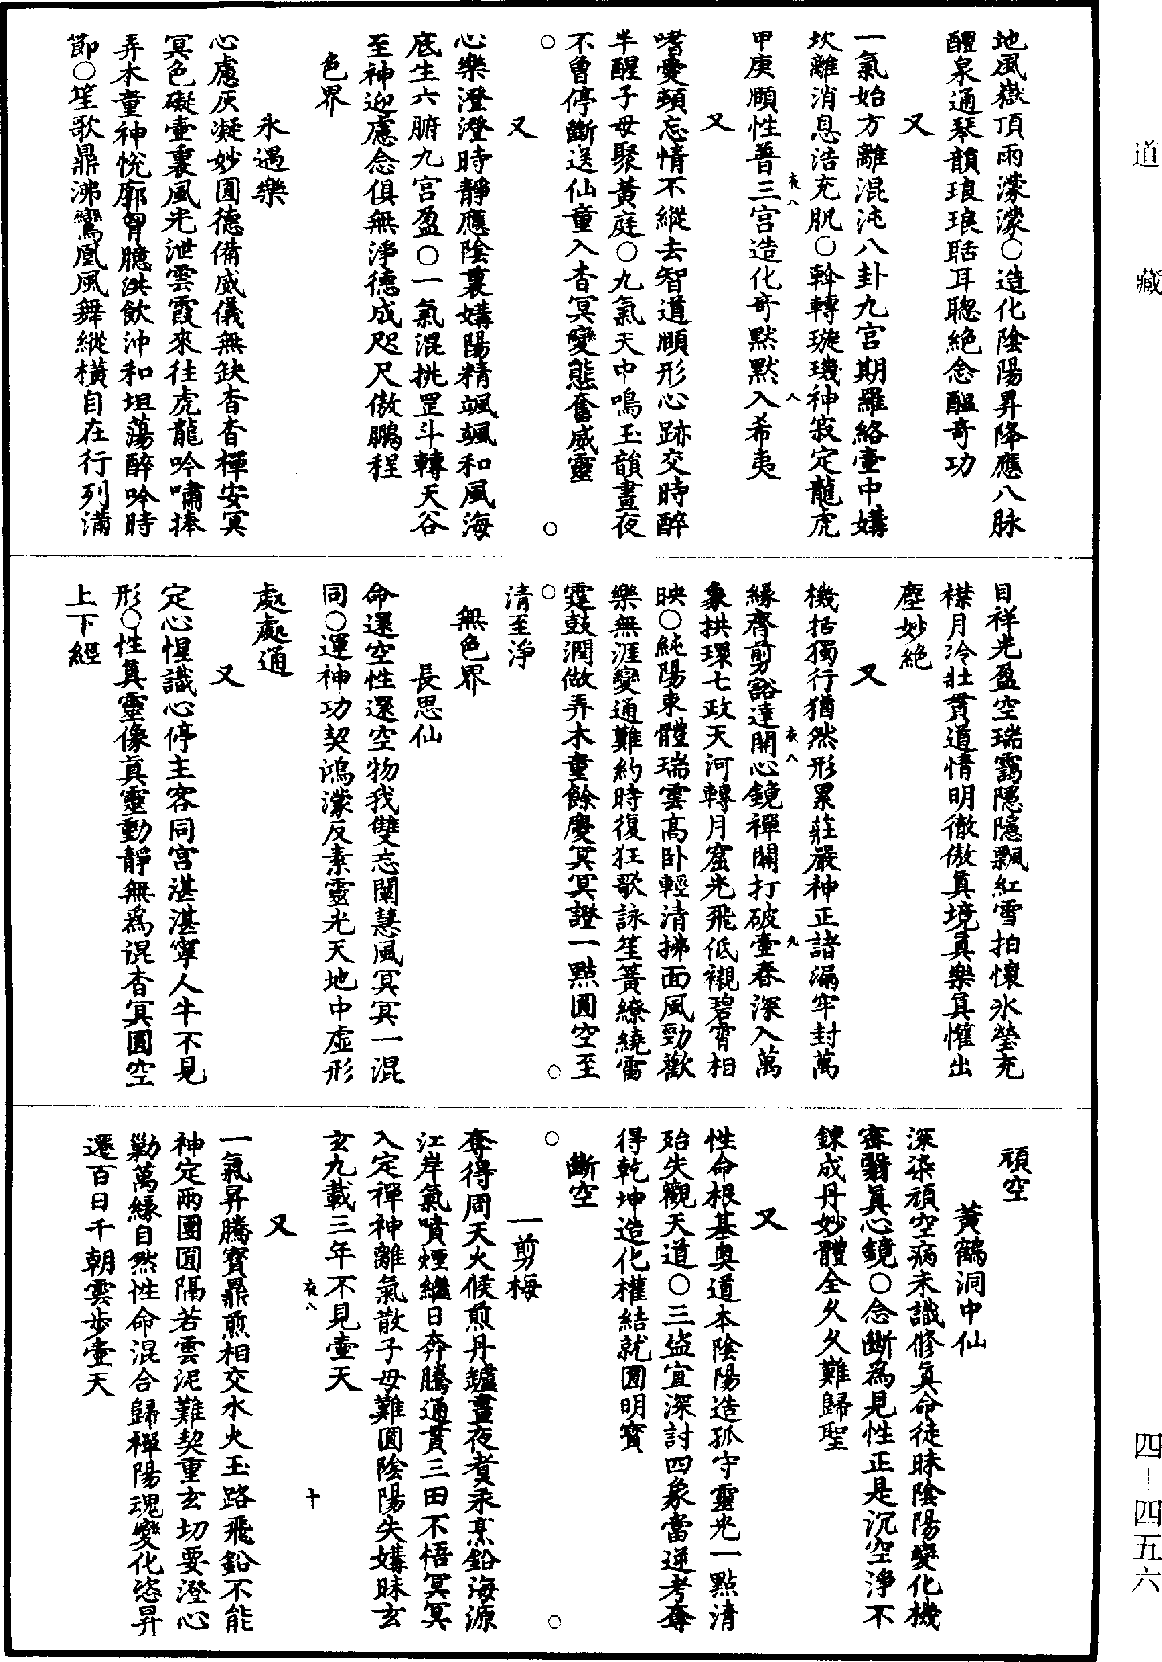 地風嶽頂雨濛濛○造化陰陽昇降應八脉
醒泉通琴韻琅琅聒耳聰絕念醞奇功
又
一氣始方離混沌八卦九宮期羅絡壺中媾
坎離消息浩充肌○斡轉璇璣神寂定龍虎
甲庚順性普三宮造化奇默默入希夷
又
嗜愛頓忘情不縱去智道順形心跡交時醉
半醒子母聚黃庭○九氣天中鳴玉韻晝夜
不曾停斷送仙童入杳冥變態奮威靈
又
心樂澄澄時靜應陰裏媾陽精颯颯和風海
底生六腑九宮盈○一氣混挑罡斗轉天谷
至神迎慮念俱無淨德成咫尺傲鵬程
色界
永遇樂
心慮灰凝妙圓德備威儀無缺杳杳禪安冥
冥色礙壺裏風光泄雲霞來往虎龍吟嘯捧
弄木童神悅廓胷臆洪飲沖和坦蕩醉吟時
節○笙歌鼎沸鸞凰風舞縱橫自在行列滿
目祥光盈空瑞靄隱隱飄紅雪拍懷氷瑩充
襟月冷壯貫道情明徹傲真境真樂真懽出
塵妙絕
又
機括獨行猶然形累莊嚴神正諸漏牢封萬
緣齊剪豁達開心鏡禪關打破壺春深入萬
象拱環七政天河轉月窟光飛低襯碧霄相
映○純陽東體瑞雲高卧輕清拂面風勁歡
樂無涯變通難約時復狂歌詠笙簧繚繞雷
霆鼓潤做弄木童餘慶冥冥證一點圓空至
清至淨
無色界
長思仙
命還空性還空物我雙忘闡慧風冥冥一混
同○運神功契鴻濛反素靈光天地中虛形
處處通
又
定心惺識心停主客同宮湛湛寧人牛不見
形○性真靈像真靈動靜無為混杳冥圓空
上下經
頑空
黃鶴洞中仙
深染頑空病未識修真命徒昧陰陽變化機
審翳真心鏡○念斷為見性正是沉空淨不
鍊成丹妙體全久久難歸聖
又
性命根基奥道本陰陽造孤守靈光一點清
殆失觀天道○三盜宜深討四象當逆考奪
得乾坤造化權結就圓明寳
斷空
一剪梅
奪得周天火候煎丹罏晝夜煑汞烹鉛海源
江岸氣噴煙繼日奔騰通貫三田不悟冥冥
入定禪神離氣散子母難圓陰陽失媾昧玄
玄九載三年不見壺天
又
一氣昇騰寳鼎煎相交水火玉路飛鉛不能
神定兩團圓隔若雲泥難契重玄切要澄心
勦萬緣自然性命混合歸禪陽魂變化恣昇
遷百日千朝雲步壺天
夜八
八
夜八
九
夜八
十
道藏
四—四五六